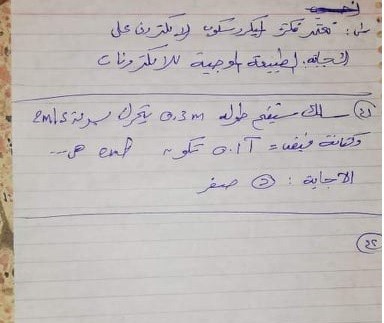 س: تعتمد فكرة الميكروسكوب الإلكتروني على
الإجابة: الطبيعة الموجية للإلكترونات
٤١) سلك مستقيم طوله 0.3m يتحرك بسرعة 2m/s
وكثافة فيض = 0.1T تكون emf هي
الإجابة: صفر
٤٢